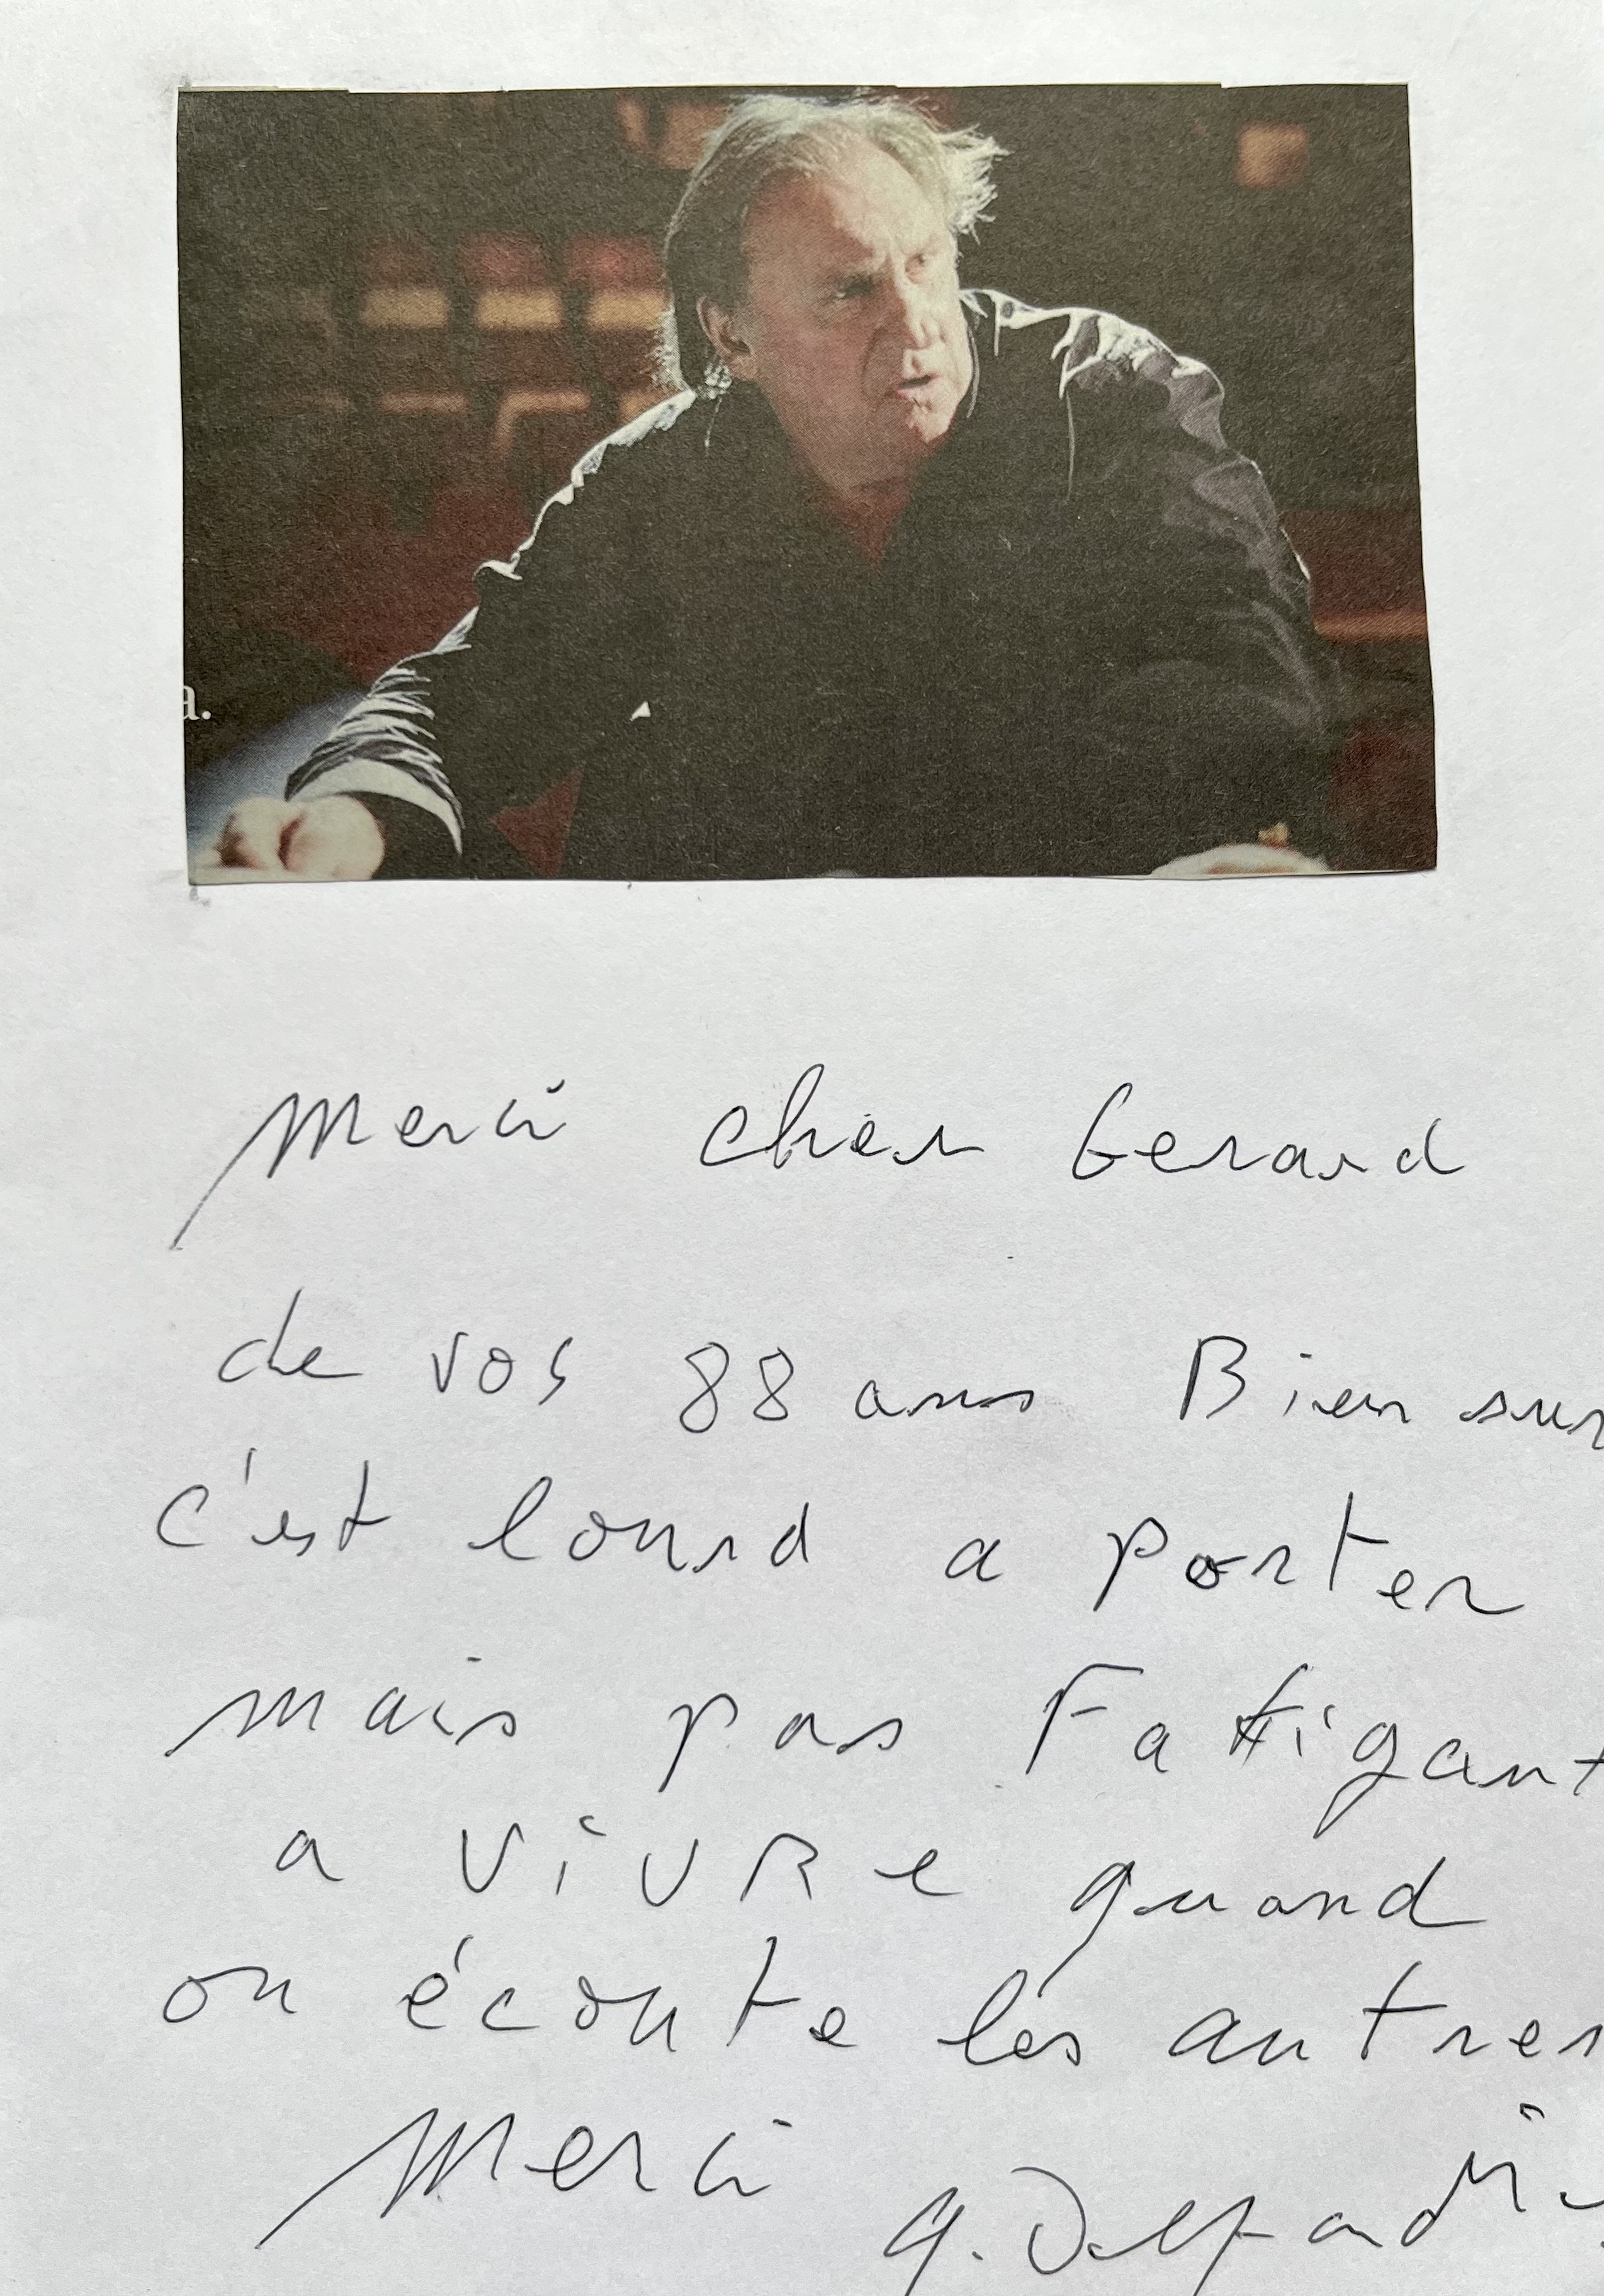 a.
Merci cher Gerard
de vos 88 ans Bien sur
c'est lourd a porter
mais pas Fatigant
a ViVRe quand
on écoute les autres
Merci